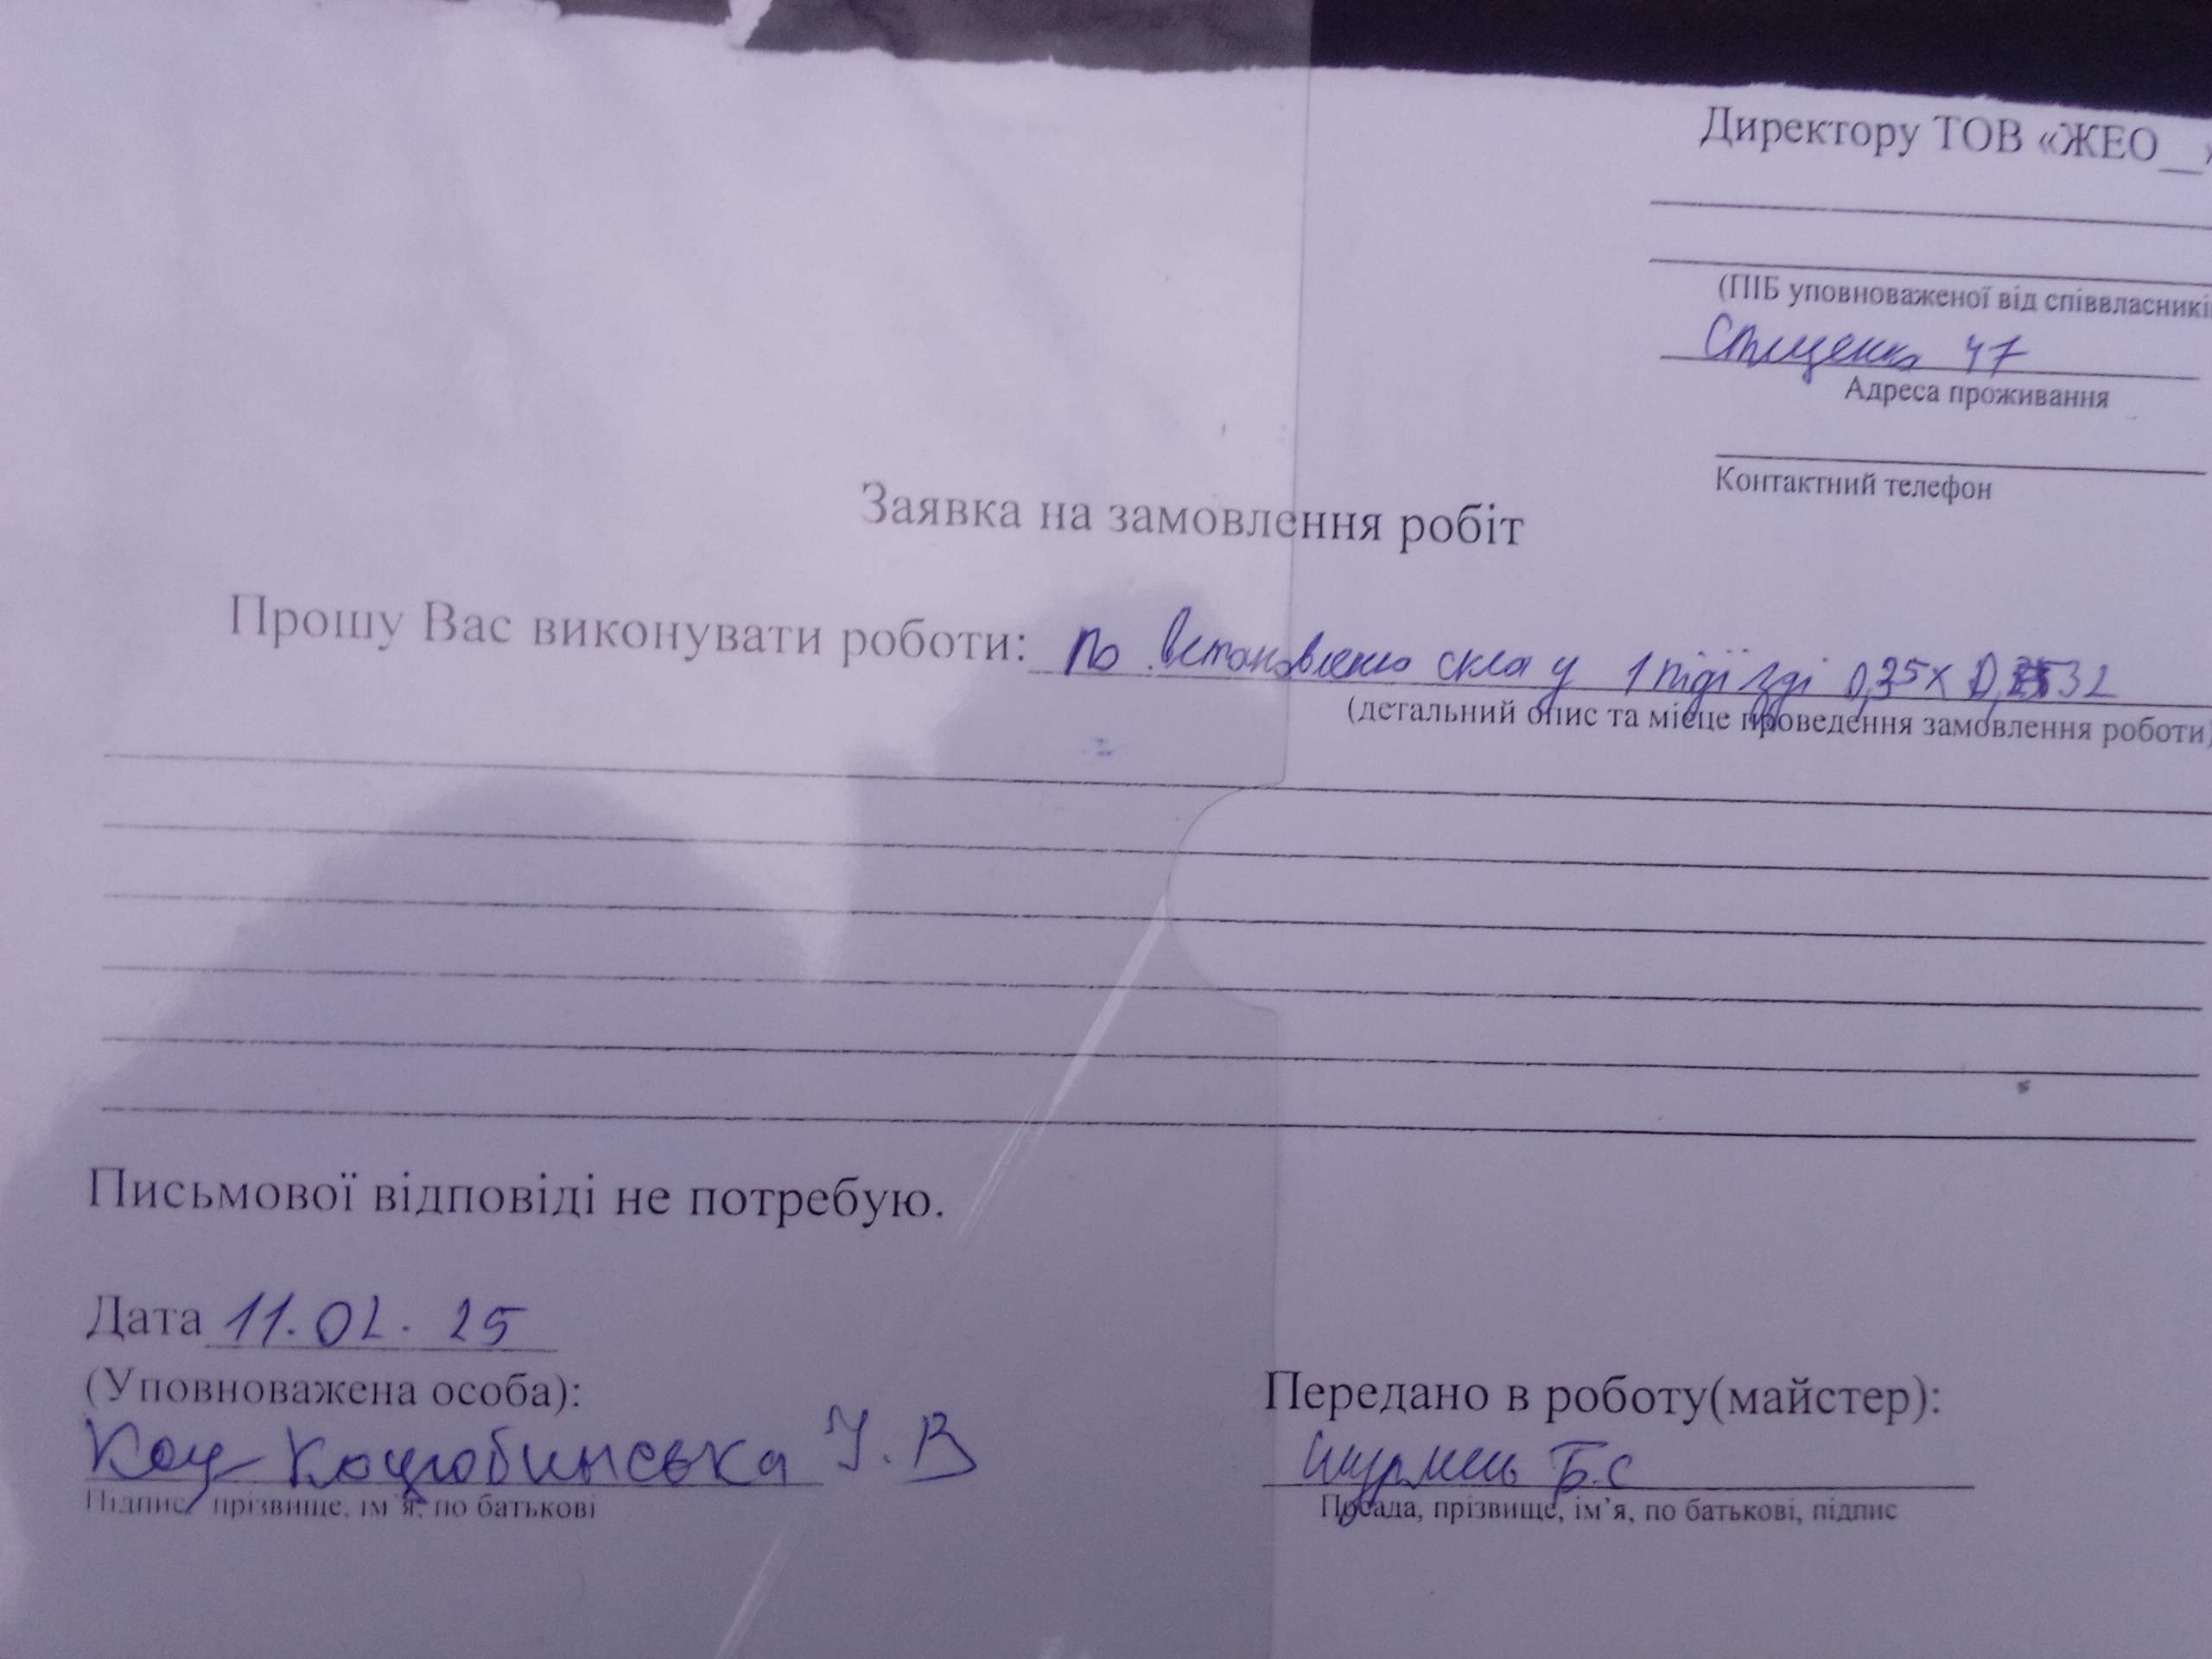 Директору ТОВ «ЖЕО__»
(ПІБ уповноваженої від співвласникі
47
Адреса проживання
Контактний телефон
Заявка на замовлення робіт
Прошу Вас виконувати роботи: по встановленю скла у 1 підїзді 0,35х 0, 32
(детальний опис та місце проведення замовлення роботи)
Письмової відповіді не потребую.
Дата 11.02.25
(Уповноважена особа):
Коц Коцюбинська І.В
Підпис, прізвище, ім'я, по батькові
Передано в роботу(майстер):
Б.С
Посада, прізвище, ім'я, по батькові, підпис